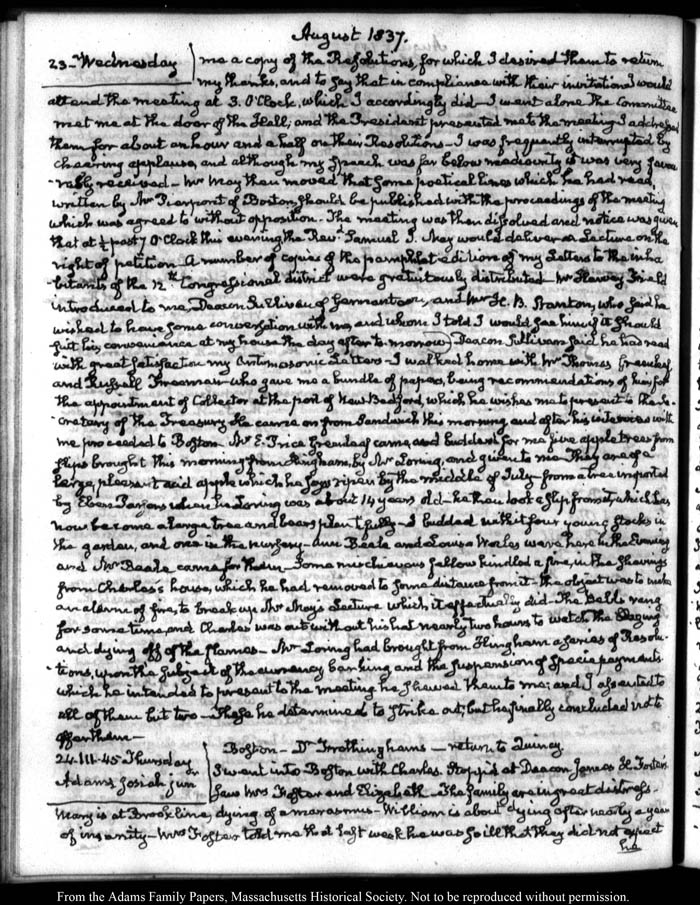 August 1837.
23. Wednesday me a copy of the Resolutions, for which I desired them to return
my thanks, and to say that in compliance with their invitation I would
attend the meeting at 3. O'Clock, which I accordingly did. I went alone. The Committee
met me at the door of the Hall; and the President presented me to the meeting. I addressed
them for about an hour and a half on their Resolutions. I was frequently interrupted by
cheering applause, and although my speech was far below mediocrity it was very favou-
rably received. Mr May then moved that some poetical lines which he had read,
written by Mr Pierpont of Boston, should be published with the proceedings of the meeting
which was agreed to without opposition. The meeting was then dissolved and notice was given
that at ½ past 7 O'Clock this evening the Revd Samuel J. May would deliver a Lecture on the
right of petition. A number of copies of the pamphlet edition of my Letters to the inha-
bitants of the 12th Congressional district were gratuitously distributed. Mr Harvey Field
introduced to me, Deacon Sullivan of Germantown, and Mr H. B. Stanton, who said he
wished to have some conversation with me, and whom I told I would see him, if it should
suit his convenience at my house the day after to-morrow. Deacon Sullivan said he had read
with great satisfaction my Antimasonic Letters. I walked home with Mr Thomas Greenleaf
and Russell Freeman who gave me a bundle of papers, being recommendations of him, for
the appointment of Collector at the port of New Bedford, which he wishes me to present to the Se-
cretary of the Treasury. He came on from Sandwich this morning, and after his interview with
me proceeded to Boston. Mr E. Price Greenleaf came, and budded for me five apple trees from
slips brought this morning from Hingham, by Mr Loring, and given to me. They are of a
large, pleasant acid apple which he says ripen by the middle of July. from a tree imported
by Eben Parsons when he Loring was about 14 years old. he then took a slip from it, which has
now become a large tree and bears plentifully. I budded with it four young stocks in
the garden, and one in the nursery. Ann Beale and Louisa were here in the Evening
and Mr Beale came for them. Some mischievous fellow kindled a fire, in the shavings
from Charles's house, which he had removed to some distance from it. the object was to make
an alarm of fire, to break up Mr May's Lecture which it effectually did. The Bells rang
for some time, and Charles was out without his hat nearly two hours to watch the
and dying off of the flames. Mr Loring had brought from Hingham a series of Resolu-
tions, upon the subject of the currency banking and the suspension of Specie payments
which he intended to present to the meeting he shewed them to me; and I assented to
all of them but two. These he determined to strike out; but he finally concluded not to
offer them.
24. III. 45 Thursday Boston. Dr Frothingham's return to Quincy.
Adams Josiah jun I went into Boston with Charles. Stopp'd at Deacon James H. Foster's
Saw Mrs Foster and Elizabeth. The family are in great distress.
Mary is at Brookline, dying of a marasmus. William is about dying after nearly a year
of insanity. Mrs Foster told me that last week he was so ill that they did not expect
he
From the Adams Family Papers, Massachusetts Historical Society. Not to be reproduced without permission.